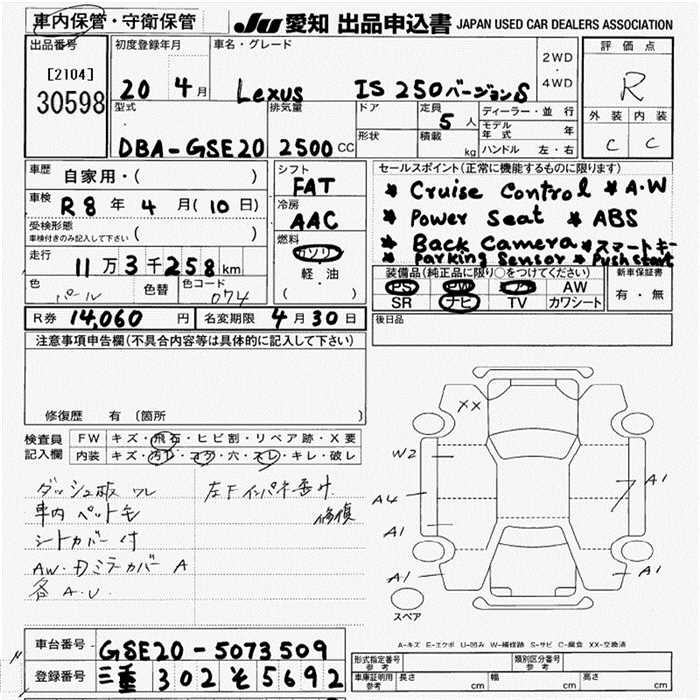 車内保管・守衛保管
JU 愛知 出品申込書 JAPAN USED CAR DEALERS ASSOCIATION
出品番号
[2104]
30598
初度登録年月
20 4月
車名・グレード
Lexus IS 250 バージョンS
2WD
・
4WD
評価点
R
外装 内装
C C
型式
DBA-GSE20
排気量
2500 CC
ドア
形状
定員
5 人
積載
kg
ディーラー・並行
モデル年式 年
ハンドル 左・右
車歴
自家用・( )
車検
R8年 4月(10日)
受検形態
車検付きのみ記入して下さい ( )
走行
11万3千258km
色
パール
色替
色コード
074
シフト
FAT
冷房
AAC
燃料
ガソリン
軽・油
( )
セールスポイント(正常に機能するものに限ります)
* Cruise Control * A.W
* Power Seat * ABS
* Back Camera * スマートキー
* Parking Sensor * Push start
装備品(純正品に限り○をつけてください)
PS PW エアB AW
SR ナビ TV カワシート
新車保証書
有・無
R券 14,060円
名変期限 4月30日
後日品
注意事項申告欄(不具合内容等は具体的に記入して下さい)
修復歴 有 〔箇所 〕
検査員
記入欄
FW キズ・飛石・ヒビ割・リペア跡・X要
内装 キズ・汚レ・コゲ・穴・スレ・キレ・破レ
ダッシュ板 ワレ
車内 ペット毛
シートカバー 付
AW・ドミラーカバー A
各 A.U.
左Fインパネ曲り
修復
XX
W2
A4
A1
A1
A1
A1
スペア
A-キズ E-エクボ U-凹み W-補修跡 S-サビ C-腐食 XX-交換済
車台番号 GSE20-5073509
登録番号 三重 302 そ 5692
形式指定番号
参考
類別区分番号
参考
車庫証明用
参考
長さ cm
幅 cm
高さ cm